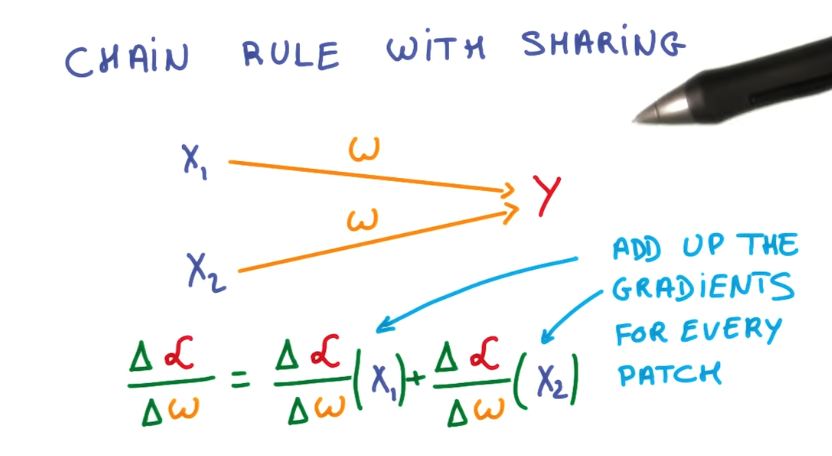 CHAIN RULE WITH SHARING
X₁
ω
ω
X₂
Y
ADD UP THE
GRADIENTS
FOR EVERY
PATCH
Δℒ/Δω = Δℒ/Δω(X₁)+Δℒ/Δω(X₂)